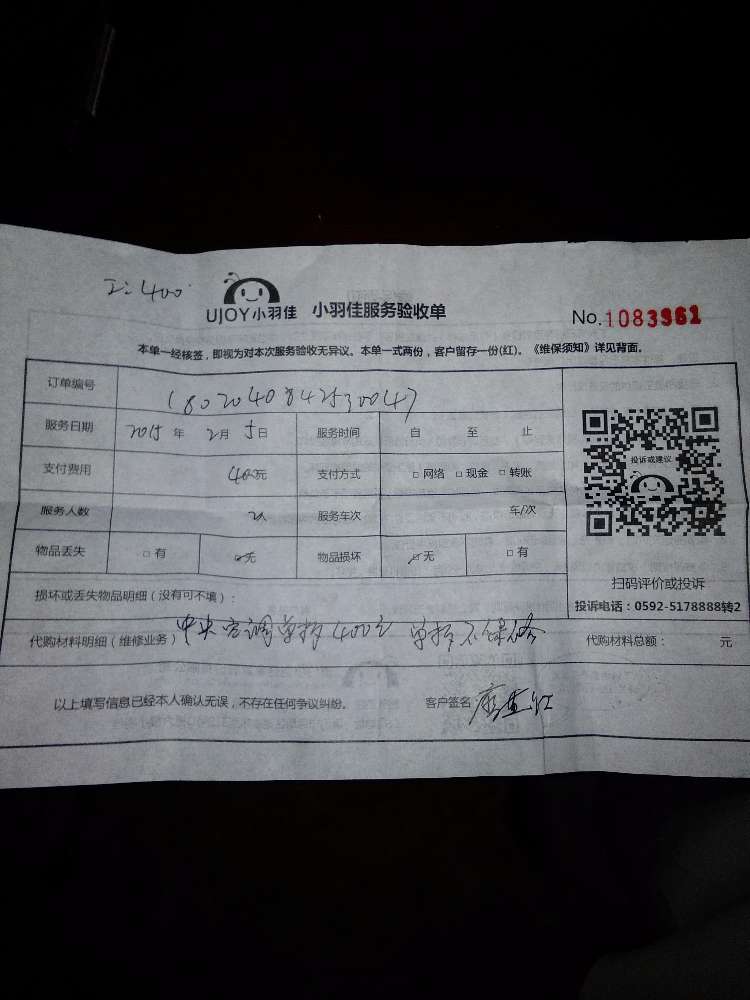 工:400
UJOY小羽佳 小羽佳服务验收单 No.1083961
本单一经核签，即视为对本次服务验收无异议。本单一式两份，客户留存一份(红)。《维保须知》详见背面。
订单编号 1802040842530047
服务日期 年 2月 5日 服务时间 自 至 止
支付费用 400元 支付方式 □ 网络 □ 现金 □ 转账
服务人数 服务车次 车/次
物品丢失 □ 有 □ 无 物品损坏 □ 无 □ 有
投诉或建议
扫码评价或投诉
投诉电话：0592-5178888转2
损坏或丢失物品明细（没有可不填）：
代购材料明细（维修业务） 中央空调单拆400元 单拆不保修 代购材料总额： 元
以上填写信息已经本人确认无误，不存在任何争议纠纷。 客户签名